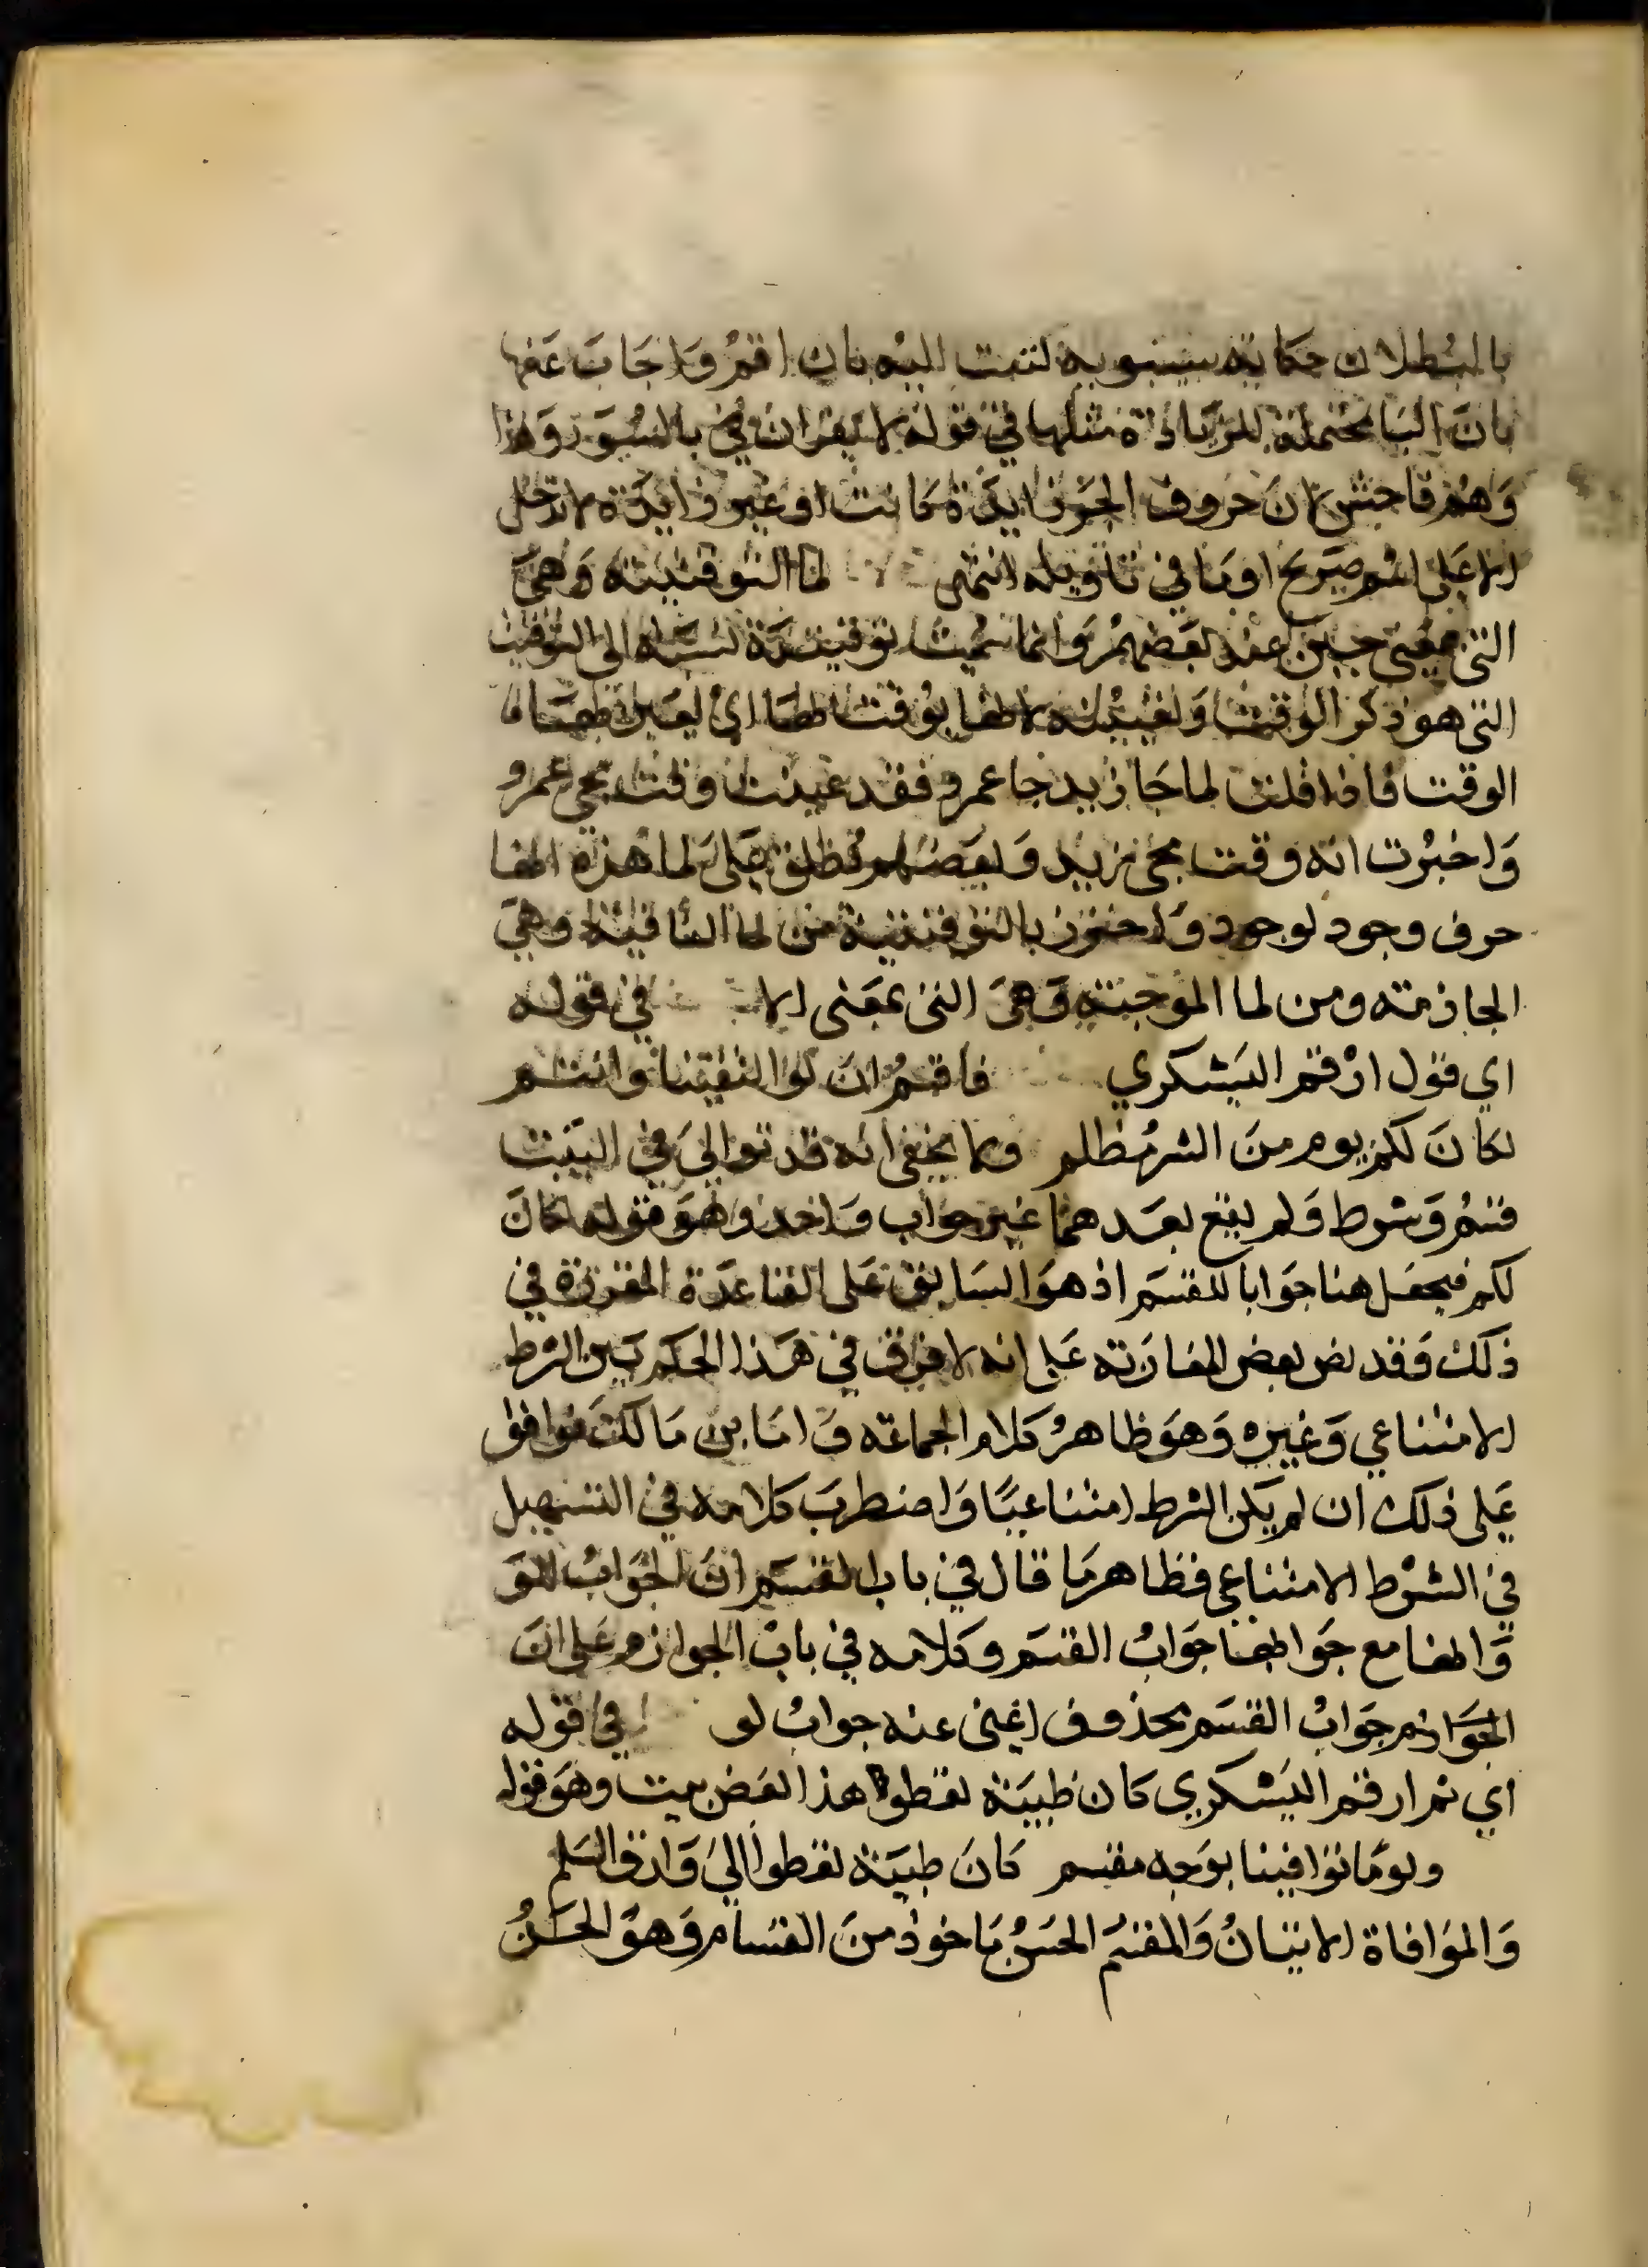 بالبطلان حكاية سيبويه كتبت اليه بان اقم واجاب عنها
بان البا محتملة للزيادة مثلها في قوله لا يقران بالسور وهذا
وهم فاحش لان حروف الجر زايدة كانت او غير زايدة لا تدخل
الا على اسم صريح او ما في تاويله انتهى لما التوقيتية وهي
التي بمعنى حين عند بعضهم وانما سميت توقيتية نسبة الى التوقيت
الذي هو ذكر الوقت وتعيينه لانها يوقت بها اي يعين بها
الوقت فاذا قلت لما جا زيد جا عمرو فقد عينت وقت مجي عمرو
واخبرت انه وقت مجي زيد وبعضهم يطلق على لما هذه انها
حرف وجود لوجود واحترز بالتوقيتية من لما النافية وهي
الجازمة ومن لما الموجبة وهي التي بمعنى الا في قوله
اي قول ارقم اليشكري فاقسم ان لو التقينا وانتم
لكان لكم يوم من الشر مظلم ولا يخفى انه قد توالى في البيت
قسم وشرط ولم يقع بعدهما غير جواب واحد وهو قوله لكان
لكم فيجعل هنا جوابا للقسم اذ هو السابق على القاعدة المقررة في
ذلك وقد نص بعض المغاربة على انه لا فرق في هذا الحكم بين الشرط
الامتناعي وغيره وهو ظاهر كلام الجماعة واما بن مالك فوافق
على ذلك ان لم يكن الشرط امتناعيا واضطرب كلامه في التسهيل
في الشرط الامتناعي فظاهر ما قال في باب القسم ان الجواب للو
وانها مع جوابها جواب القسم وكلامه في باب الجوازم على ان
الجوازم جواب القسم محذوف اغنى عنه جواب لو في قوله
اي ثم ارقم اليشكري كان ظبية تعطوا هذا بعض بيت وهو قوله
ويوما توافينا بوجه مقسم كان ظبية تعطوا الى وارق السلم
والموافاة الاتيان والمقسم الحسن ماخوذ من القسام وهو الحسن